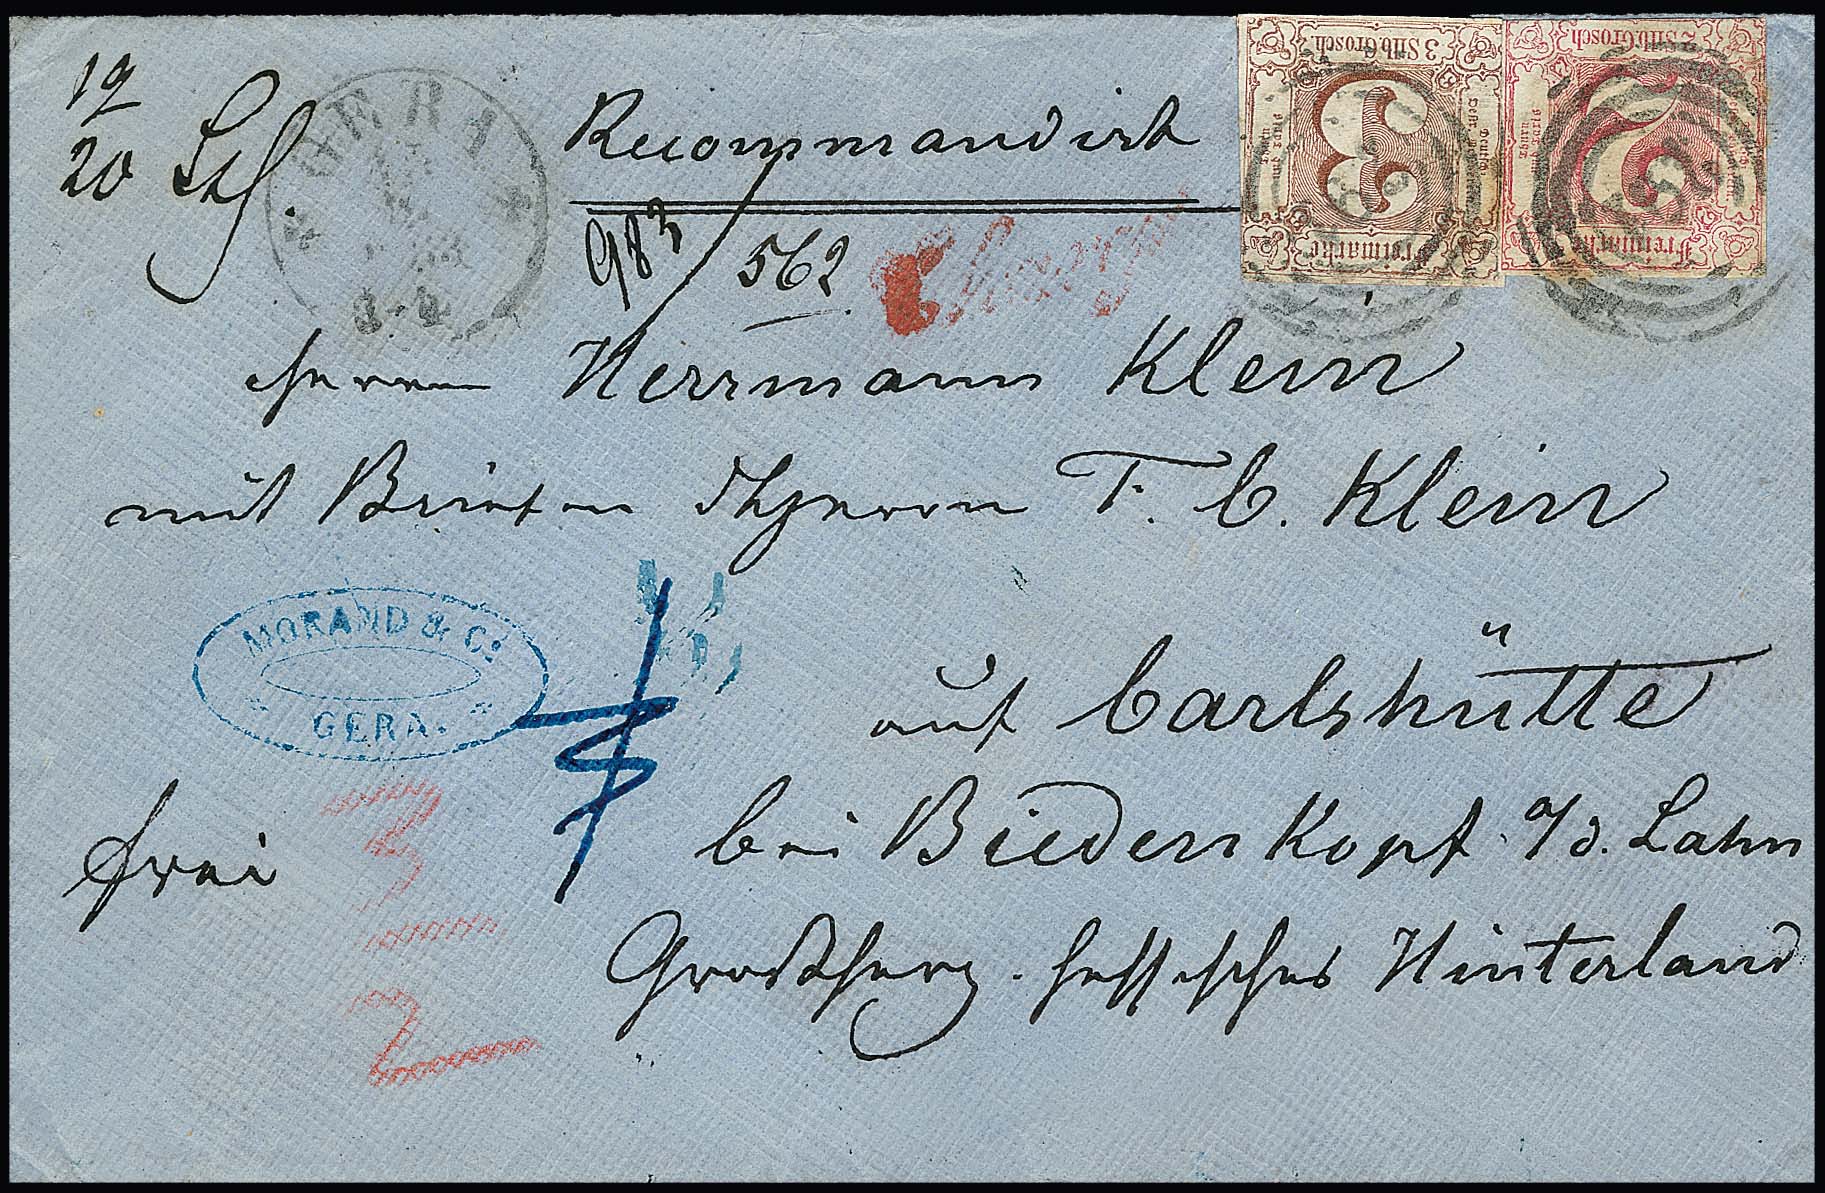 19/20 Lth.
GERA
3-4
Recommandirt
983
562
Chargé
3 Silb. Grosch.
3
Freimarke
2 Silb. Grosch.
2
Freimarke
Herrn Herrmann Klein
mit Briefen Ihr Herrn T. C. Klein
MORAND & Co.
GERA.
auf Carlshütte
frei
bei Biedenkopf a/d. Lahn
Großherz. hessisches Hinterland
3
2